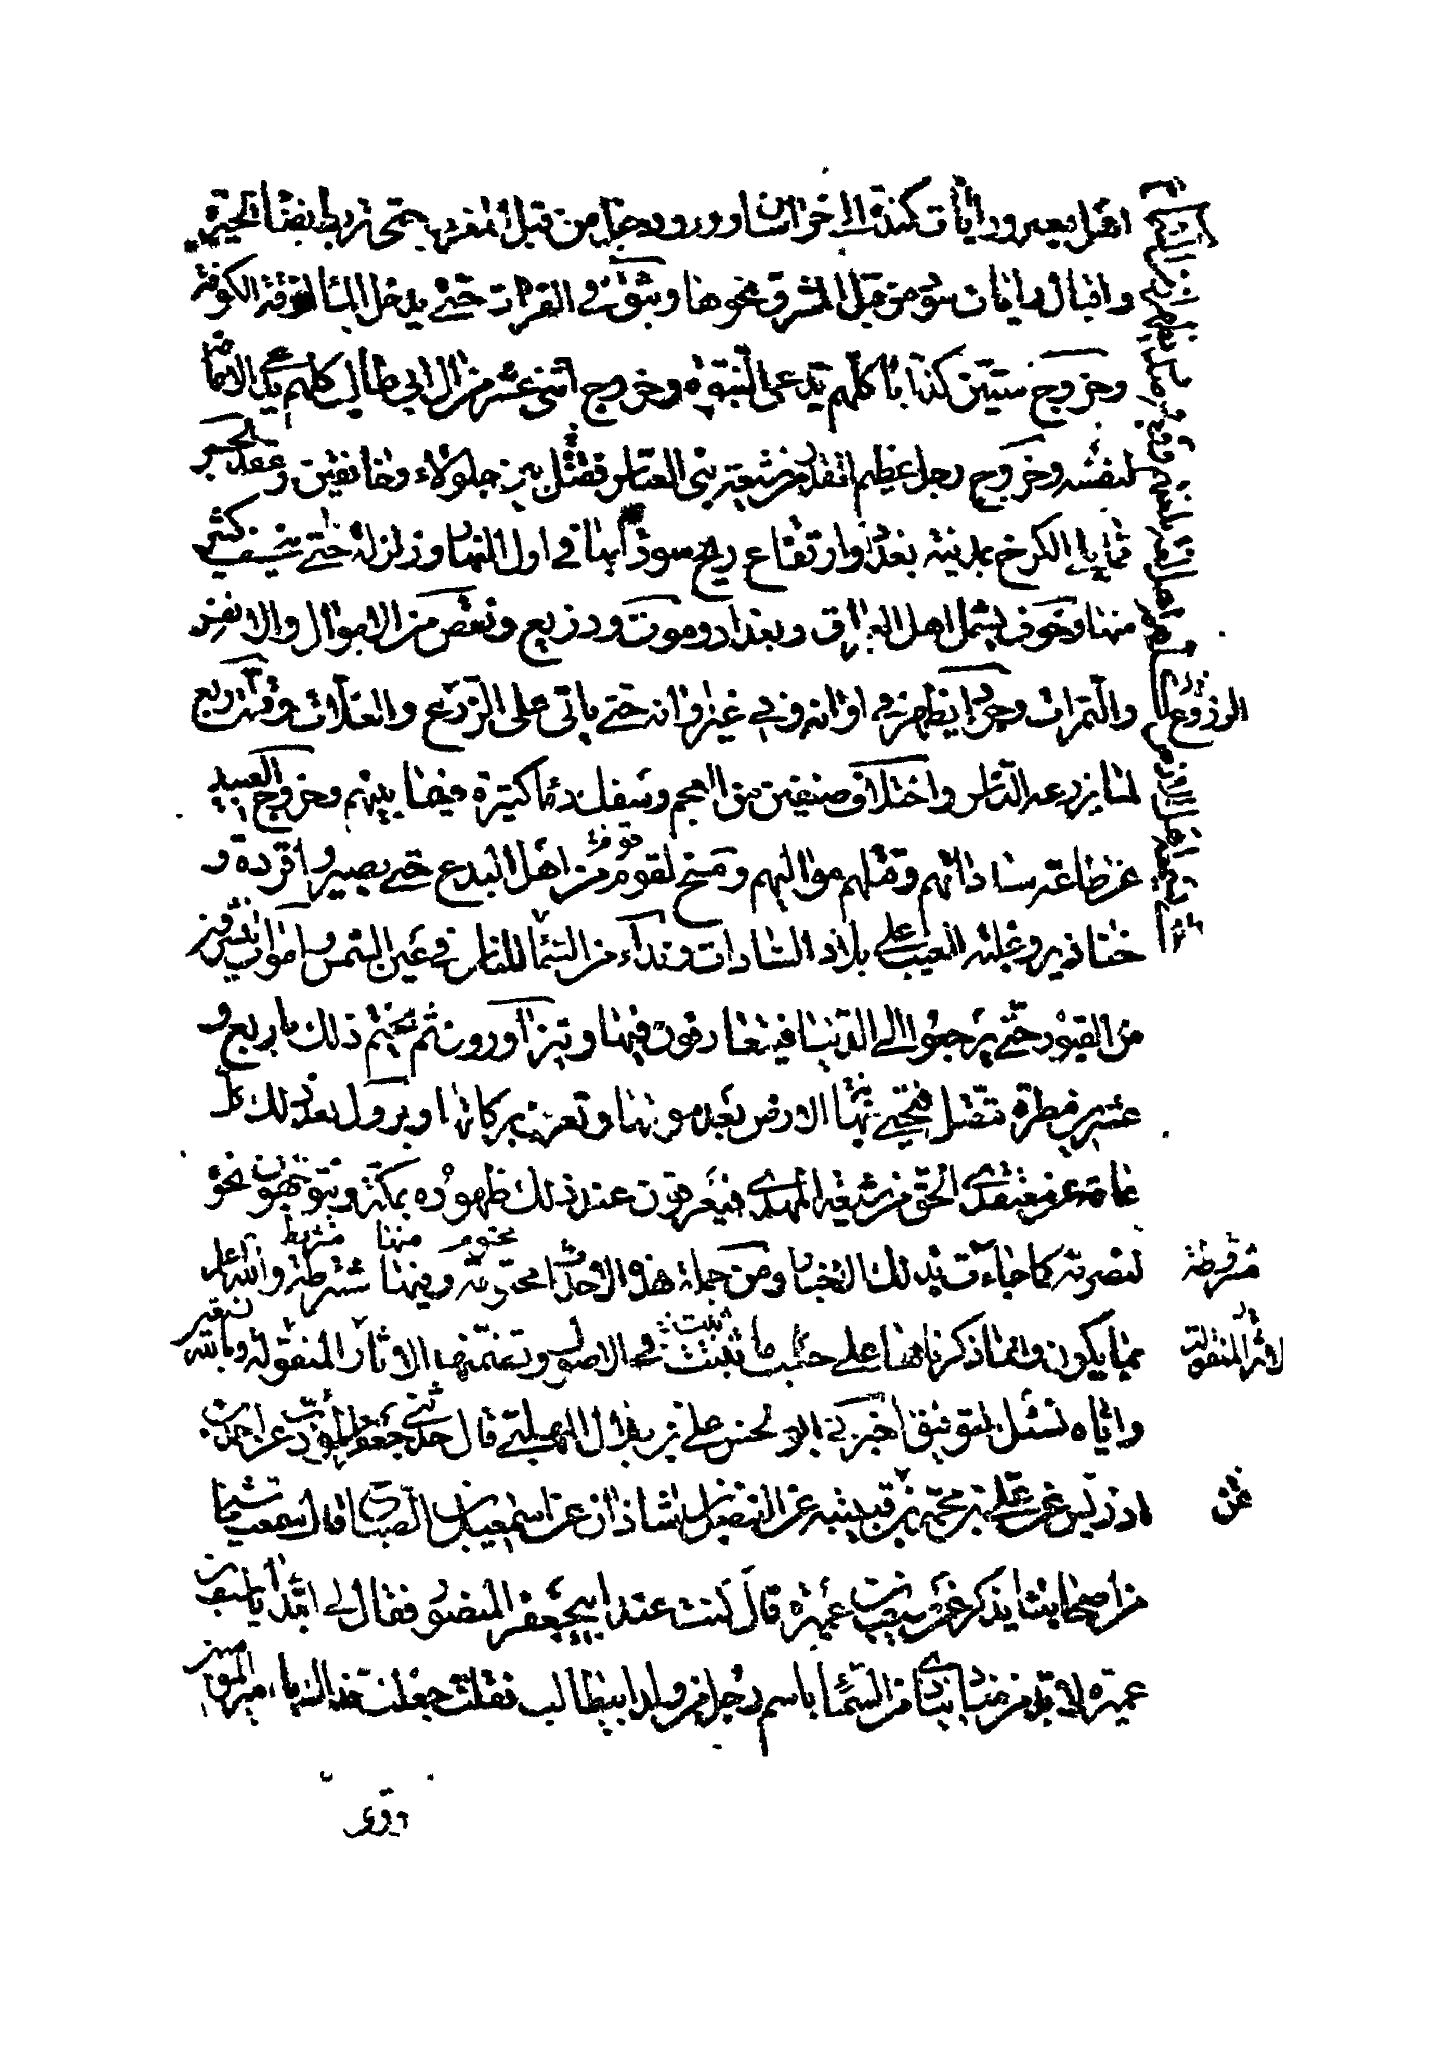 اهل مصر ورايات كندة الى خراسان وورود خيل من قبل المغرب حتى تربط بفناء الحيرة
واقبال رايات سود من قبل المشرق نحوها وبثق فى الفرات حتى يدخل الماء ازقة الكوفة
وخروج ستين كذابا كلهم يدعى النبوة وخروج اثنى عشر من آل ابى طالب كلهم يدعى الامامة
لنفسه وخروج رجل عظيم القدر من شيعة بنى العباس فقتل بين جلولاء وخانقين وعقد الجسر
مما يلى الكرخ بمدينة بغداد وارتفاع ريح سوداء بها فى اول النهار وزلزلة حتى ينخسف كثير
منها وخوف يشمل اهل العراق وبغداد وموت ذريع ونقص من الاموال والانفس
والثمرات وجراد يظهر فى اوانه وفى غير اوانه حتى ياتى على الزرع والغلات وقلة ريع
لما يزرعه الناس واختلاف صنفين من العجم وسفك دماء كثيرة فيما بينهم وخروج العبيد
عن طاعة ساداتهم وقتلهم مواليهم ومسخ لقوم من اهل البدع حتى يصيروا قردة و
خنازير وغلبة العبيد على بلاد السادات ونداء من السماء للناس فى عين الشمس واموات ينشرون
من القبور حتى يرجعوا الى الدنيا فيتعارفون فيها ويتزاورون ثم يختم ذلك باربع و
عشرين مطرة تتصل فتحيى بها الارض بعد موتها وتعرف بركاتها ويزول بعد ذلك كل
عاهة عن معتقدى الحق من شيعة المهدى فيعرفون عند ذلك ظهوره بمكة ويتوجهون نحو
لنصرته كما جاءت بذلك الاخبار ومن جملة هذه الاحداث محتومة ومنها مشترطة والله اعلم
بما يكون وانما ذكرناها على حسب ما ثبت فى الاصول وتضمنها الاثار المنقولة وبالله نستعين
واياه نسئل التوفيق اخبرنى ابو الحسن على بن بلال المهلبى قال حدثنى محمد بن جعفر المؤدب عن احمد بن
ادريس عن على بن محمد بن قتيبة عن الفضل بن شاذان عن اسمعيل بن الصباح قال سمعت شيخا
من اصحابنا يذكر عن سيف بن عميرة قال كنت عند ابى جعفر المنصور فقال لى ابتداء يا سيف بن
عميرة لابد من مناد ينادى من السماء باسم رجل من ولد ابى طالب فقلت جعلت فداك يا امير المؤمنين